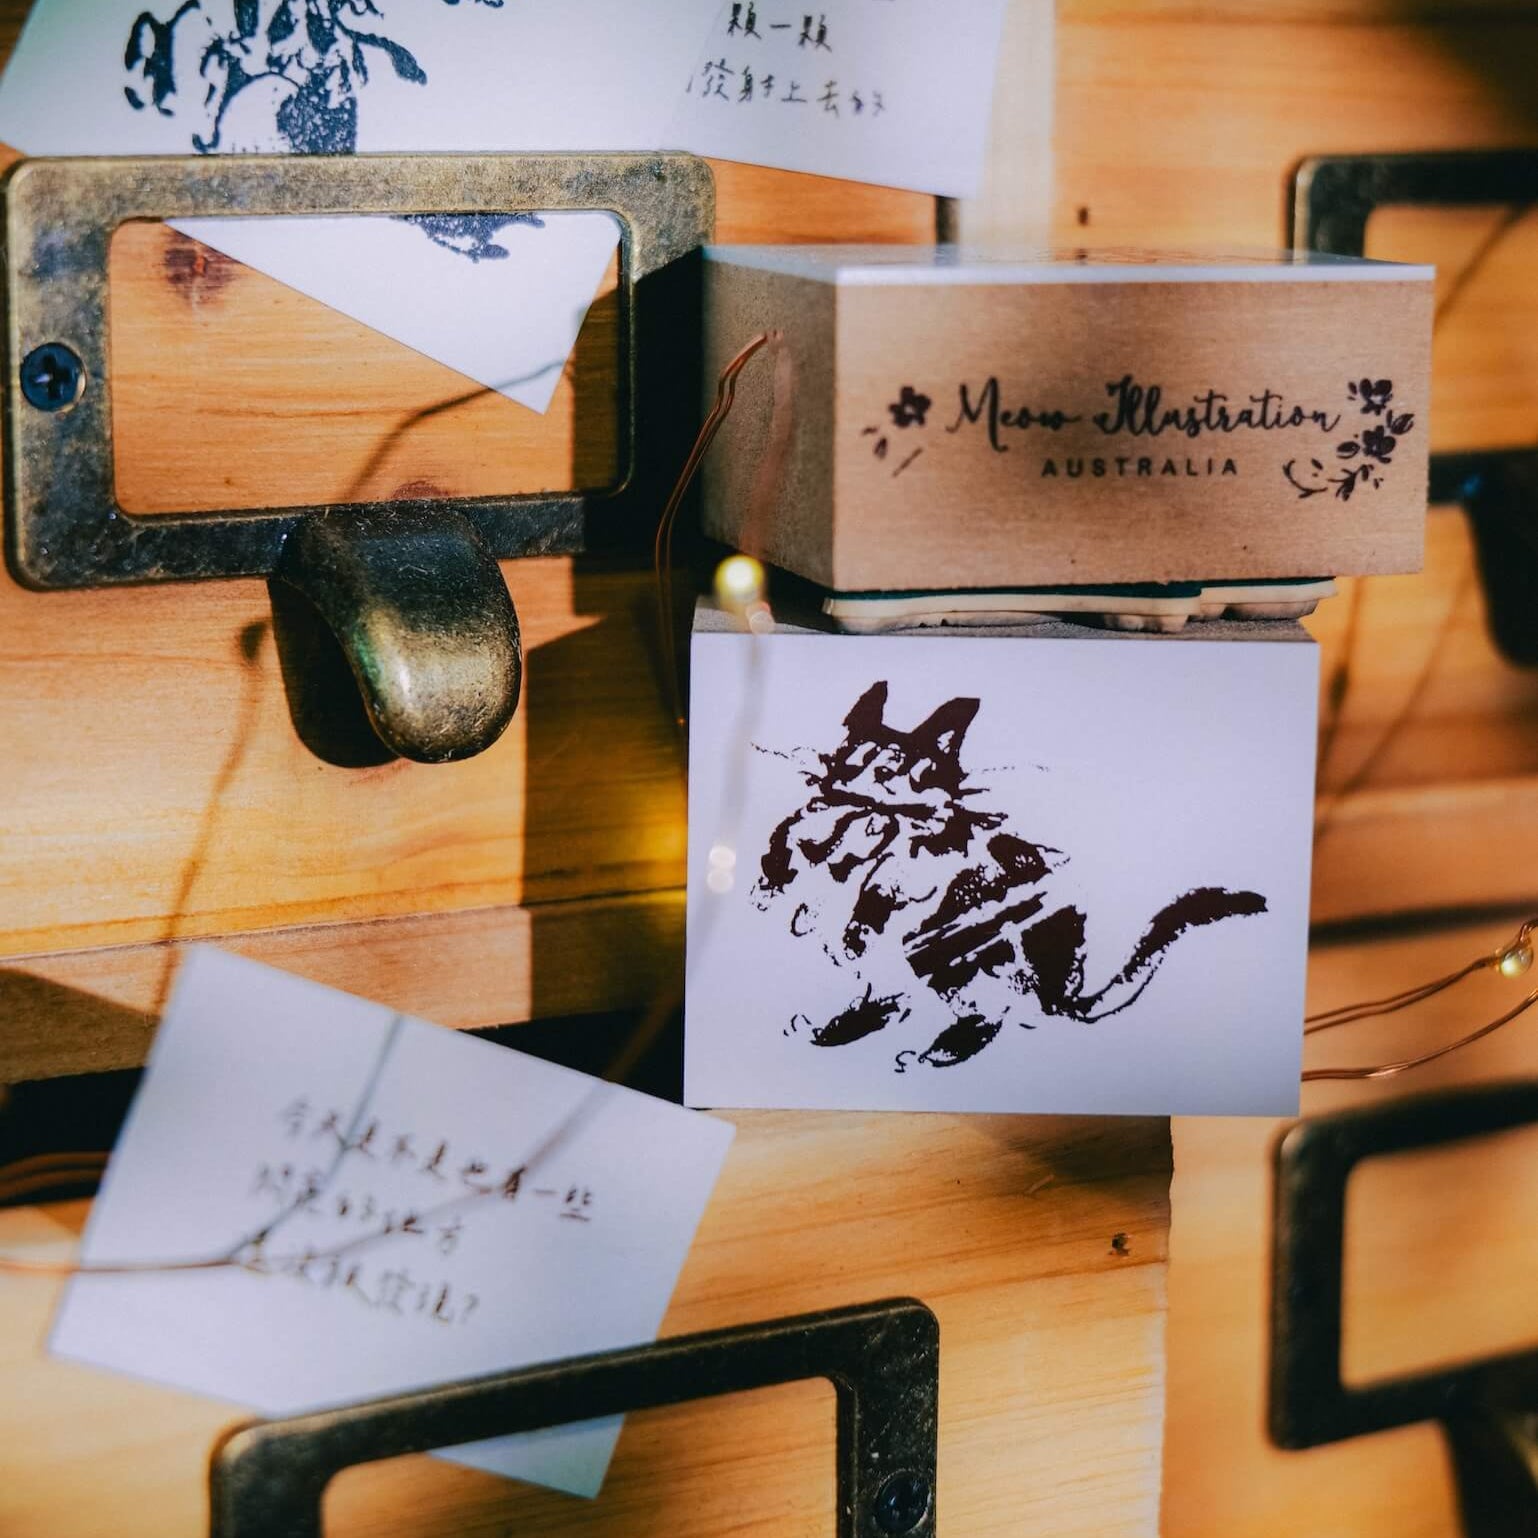 顆一顆
發射上去的
Meow Illustration
AUSTRALIA
今天是不是也有一些
閃亮的地方
還沒被發現?